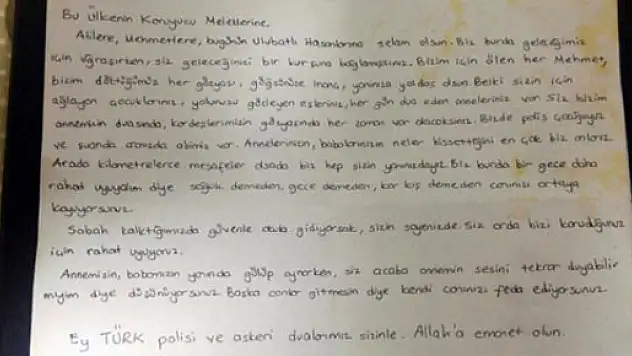 Bu Ülkenin Koruyucu Meleklerine.
Alilere, Mehmetlere, bugünün Ulubatlı Hasanlarına selam olsun. Biz burda geleceğimiz
için uğraşırken, siz geleceğinizi bir kurşuna bağlamışsınız. Bizim için ölen her Mehmet,
bizim döktüğümüz her gözyaşı, göğsünüze inanç, yanınıza yoldaş olsun. Belki sizin için
ağlayan çocuklarınız, yolunuzu gözleyen eşleriniz, her gün dua eden anneleriniz var. Siz bizim
annemizin duasında, kardeşlerimizin gözyaşında her zaman var olacaksınız. Bizde polis çocuğuyuz
ve şuanda aramızda abimiz var. Annelerinizin, babalarınızın neler hissettiğini en çok biz anlarız.
Arada kilometrelerce mesafeler olsada biz hep sizin yanınızdayız. Biz burda bir gece daha
rahat uyuyalım diye soğuk demeden, gece demeden, kar kış demeden canınızı ortaya
koyuyorsunuz.
Sabah kalktığımızda güvenle okula gidiyorsak, sizin sayenizde. Siz orda bizi koruduğunuz
için rahat uyuyoruz.
Annemizin, babamızın yanında gülüp oynarken, siz acaba annemin sesini tekrar duyabilir
miyim diye düşünüyorsunuz. Başka canlar gitmesin diye kendi canınızı feda ediyorsunuz.
Ey TÜRK polisi ve askeri dualarımız sizinle. Allah'a emanet olun.